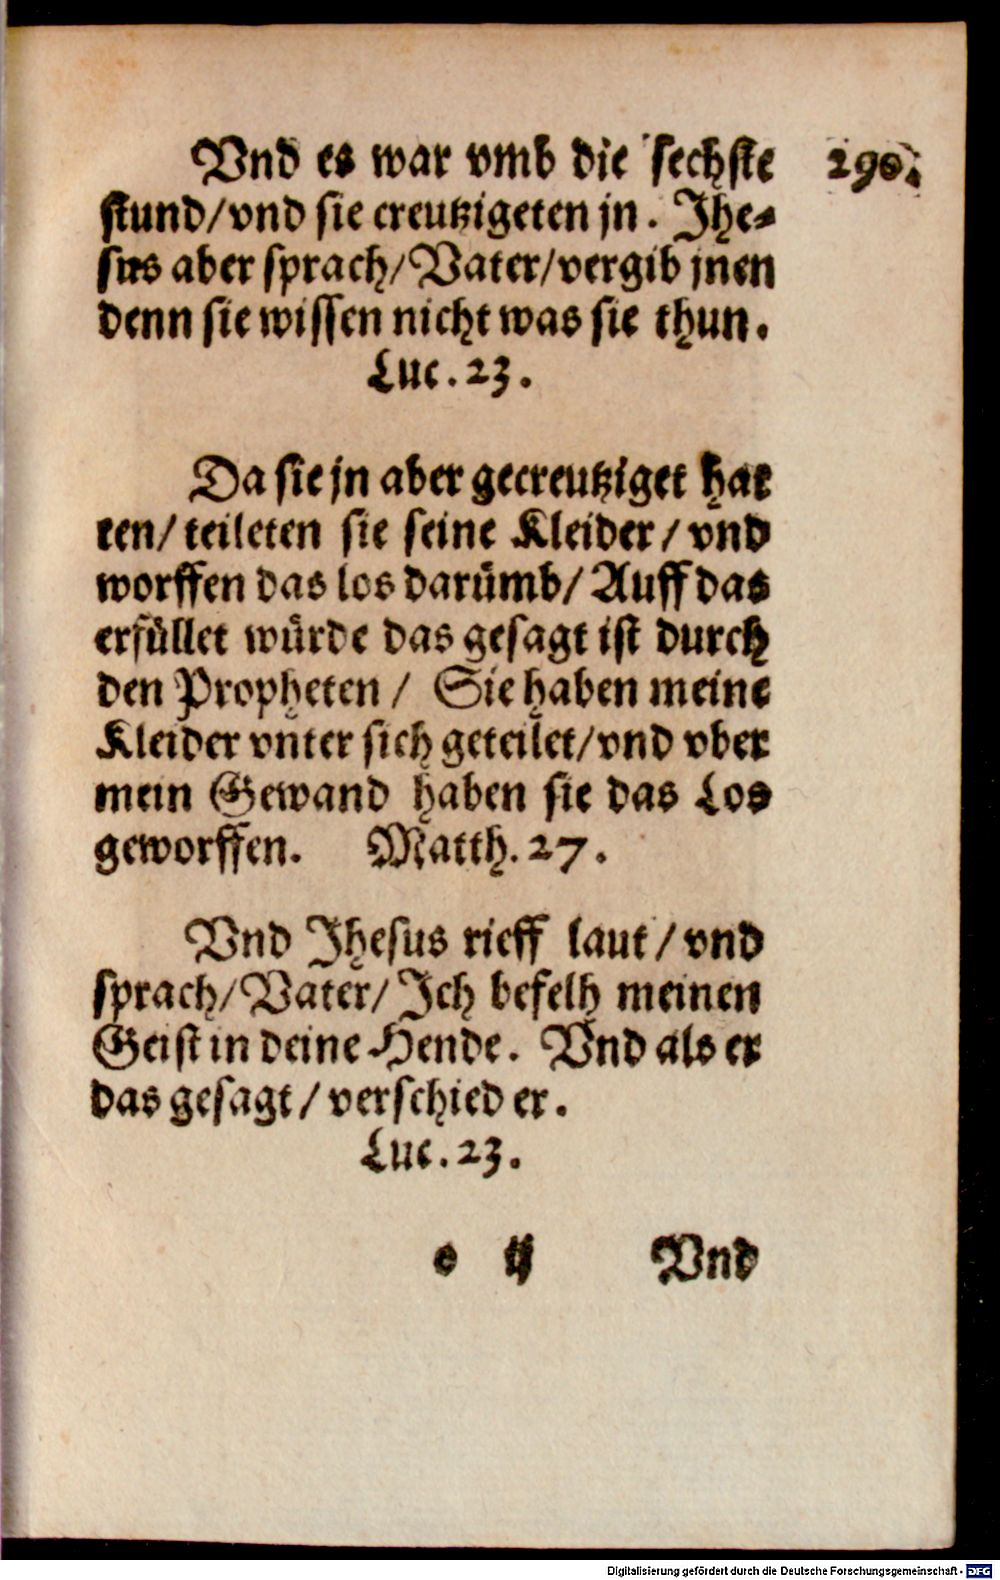 Vnd es war vmb die sechste 290.
stund/vnd sie creutzigeten jn. Jhe-
sus aber sprach/Vater/vergib jnen
denn sie wissen nicht was sie thun.
Luc. 23.
Da sie jn aber gecreutziget hat
ten/teileten sie seine Kleider/vnd
worffen das los darümb/Auff das
erfüllet würde das gesagt ist durch
den Propheten/ Sie haben meine
Kleider vnter sich geteilet/vnd vber
mein Gewand haben sie das Los
geworffen. Matth. 27.
Vnd Jhesus rieff laut/vnd
sprach/Vater/Jch befelh meinen
Geist in deine Hende. Vnd als er
das gesagt/verschied er.
Luc. 23.
e ij Vnd
Digitalisierung gefördert durch die Deutsche Forschungsgemeinschaft - DFG